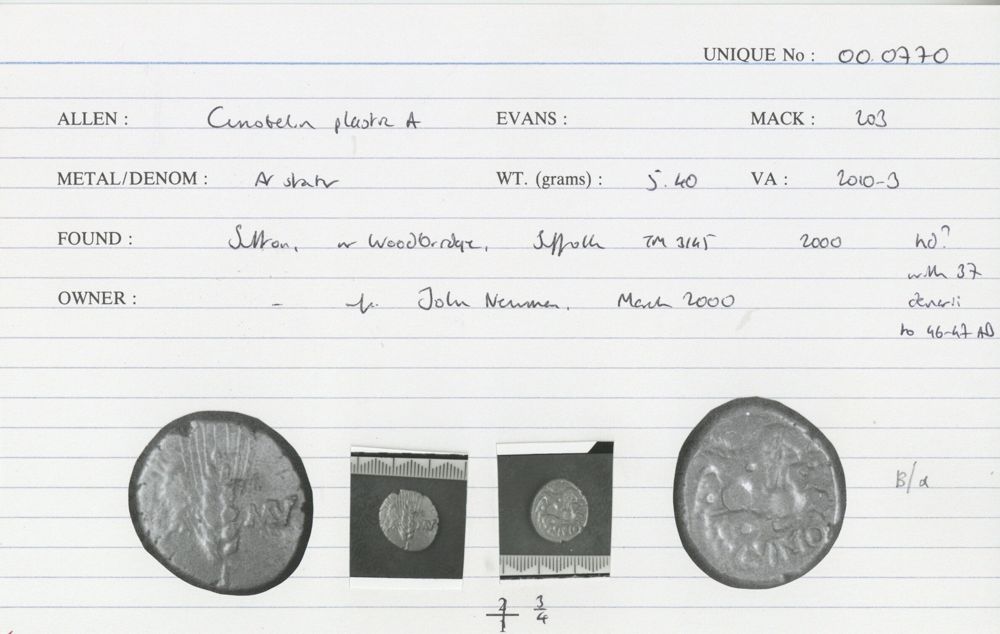 UNIQUE No : 00.0770
ALLEN : Cunobelin plastic A EVANS : MACK : 203
METAL/DENOM : AV stater WT. (grams) : 5.40 VA : 2010-3
FOUND : Sutton, nr Woodbridge, Suffolk TM 3145 2000 hd?
with 37
OWNER : - John Newman, March 2000 denarii
to 46-47 AD
MV
B/a
2/1 3/4